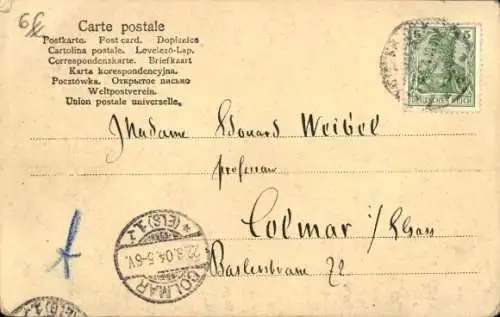 6
Carte postale
Postkarte. Post card. Dopisnice
Cartolina postale. Levelező-Lap.
Correspondenzkarte. Briefkaart
Karta korespondencyjna.
Pocztówka. Открытое письмо
Weltpostverein.
Union postale universelle.
5 5
DEUTSCHES REICH
Madame Edouard Weibel
professeur
Colmar i/Elsass
Baslerstrasse 72
* (ELS) 1.
22.8.04.5-6V.
COLMAR